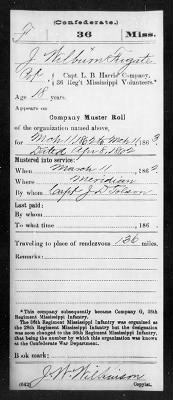 (Confederate.)
F 36 Miss.
J Wilburn
Capt. L. B. Harris' Company,
36 Reg't Mississippi Volunteers.*
Age 18 years.
Appears on
Company Muster Roll
of the organization named above,
for Mch 11 1862 to Mch 11, 1863.
Dated Apr 8, 1862
Mustered into service:
When March 11, 1862
Where Meridian
By whom Capt J. D.
Last paid:
By whom
To what time , 186 .
Traveling to place of rendezvous 136 miles.
Remarks:
*This company subsequently became Company G, 36th
Regiment Mississippi Infantry.
The 36th Regiment Mississippi Infantry was organized as
the 28th Regiment Mississippi Infantry but the designation
was soon changed to the 36th Regiment Mississippi Infantry,
that being the number by which this organization was known
at the Confederate War Department.
Book mark:
J. W. Wilkinson
(642) Copyist.